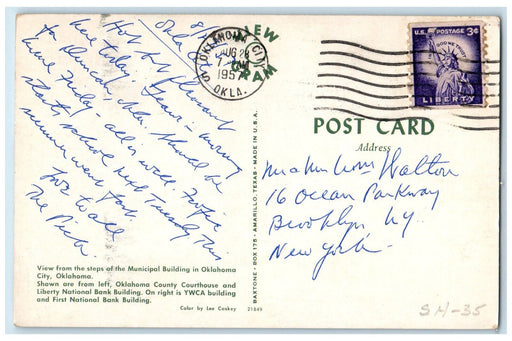 8/28
Okla City
Hot but pleasant
here today. Leave in morning
for Duncan, Okla. Should be
home Friday - all is well.
start school next Tuesday this
summer went fast.
for to all
The Dick
VIEW
GRAM
OKLAHOMA CITY
AUG 28
1957
OKLA.
U.S. POSTAGE 3¢
IN GOD WE TRUST
LIBERTY
POST CARD
Address
Walton
16 Ocean Parkway
Brooklyn, Ny.
New York
View from the steps of the Municipal Building in Oklahoma
City, Oklahoma.
Shown are from left, Oklahoma County Courthouse and
Liberty National Bank Building. On right is YWCA building
and First National Bank Building.
Color by Lee Caskey 21849
BAXTONE - BOX 175 - AMARILLO, TEXAS - MADE IN U.S.A.
SH-35